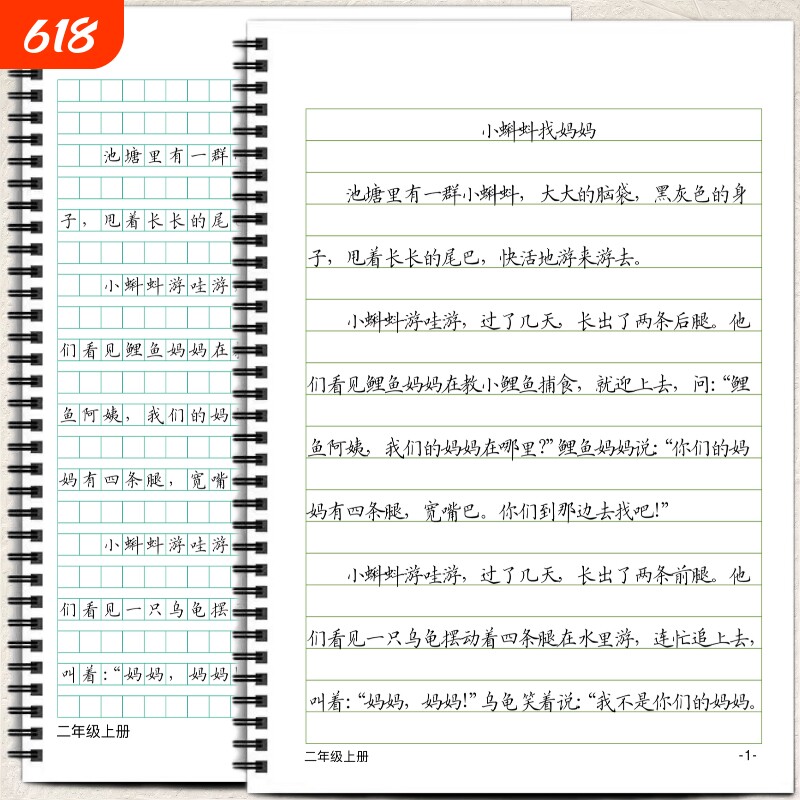 618
池塘里有一群
子，甩着长长的尾
小蝌蚪游哇游
们看见鲤鱼妈妈在
鱼阿姨，我们的妈
妈有四条腿，宽嘴
小蝌蚪游哇游
们看见一只乌龟摆
叫着：“妈妈，妈妈
二年级上册
小蝌蚪找妈妈
池塘里有一群小蝌蚪，大大的脑袋，黑灰色的身
子，甩着长长的尾巴，快活地游来游去。
小蝌蚪游哇游，过了几天，长出了两条后腿。他
们看见鲤鱼妈妈在教小鲤鱼捕食，就迎上去，问：“鲤
鱼阿姨，我们的妈妈在哪里？”鲤鱼妈妈说：“你们的妈
妈有四条腿，宽嘴巴。你们到那边去找吧！”
小蝌蚪游哇游，过了几天，长出了两条前腿。他
们看见一只乌龟摆动着四条腿在水里游，连忙追上去，
叫着：“妈妈，妈妈！”乌龟笑着说：“我不是你们的妈妈。
二年级上册
-1-